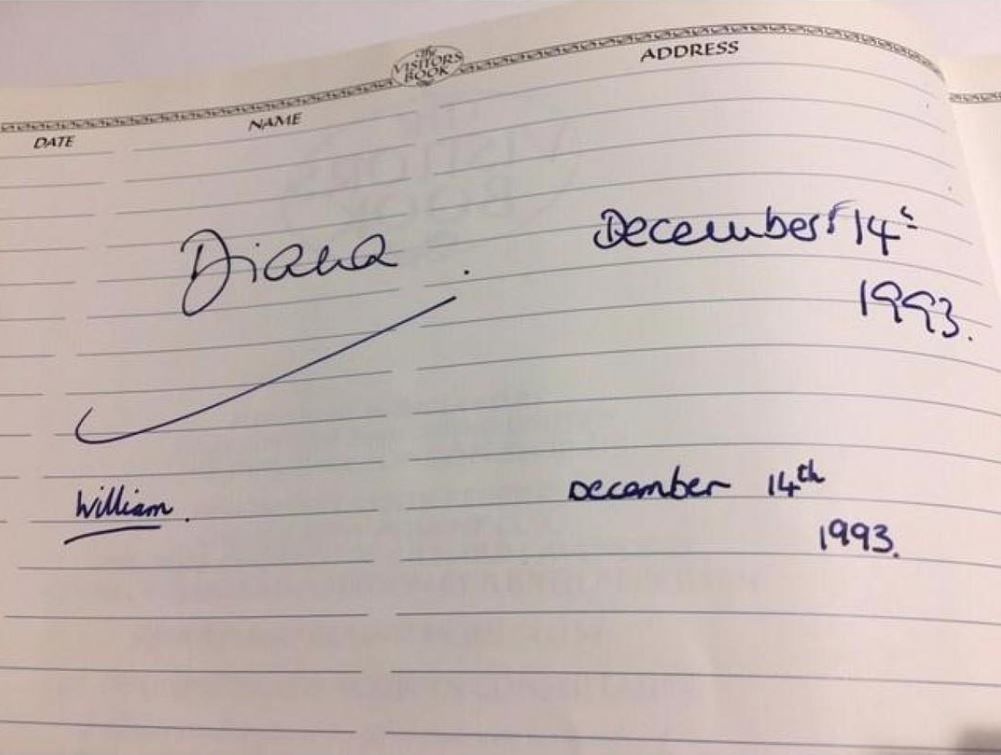 The
VISITORS
BOOK
DATE NAME ADDRESS
Diana. December 14th
1993.
William. December 14th
1993.